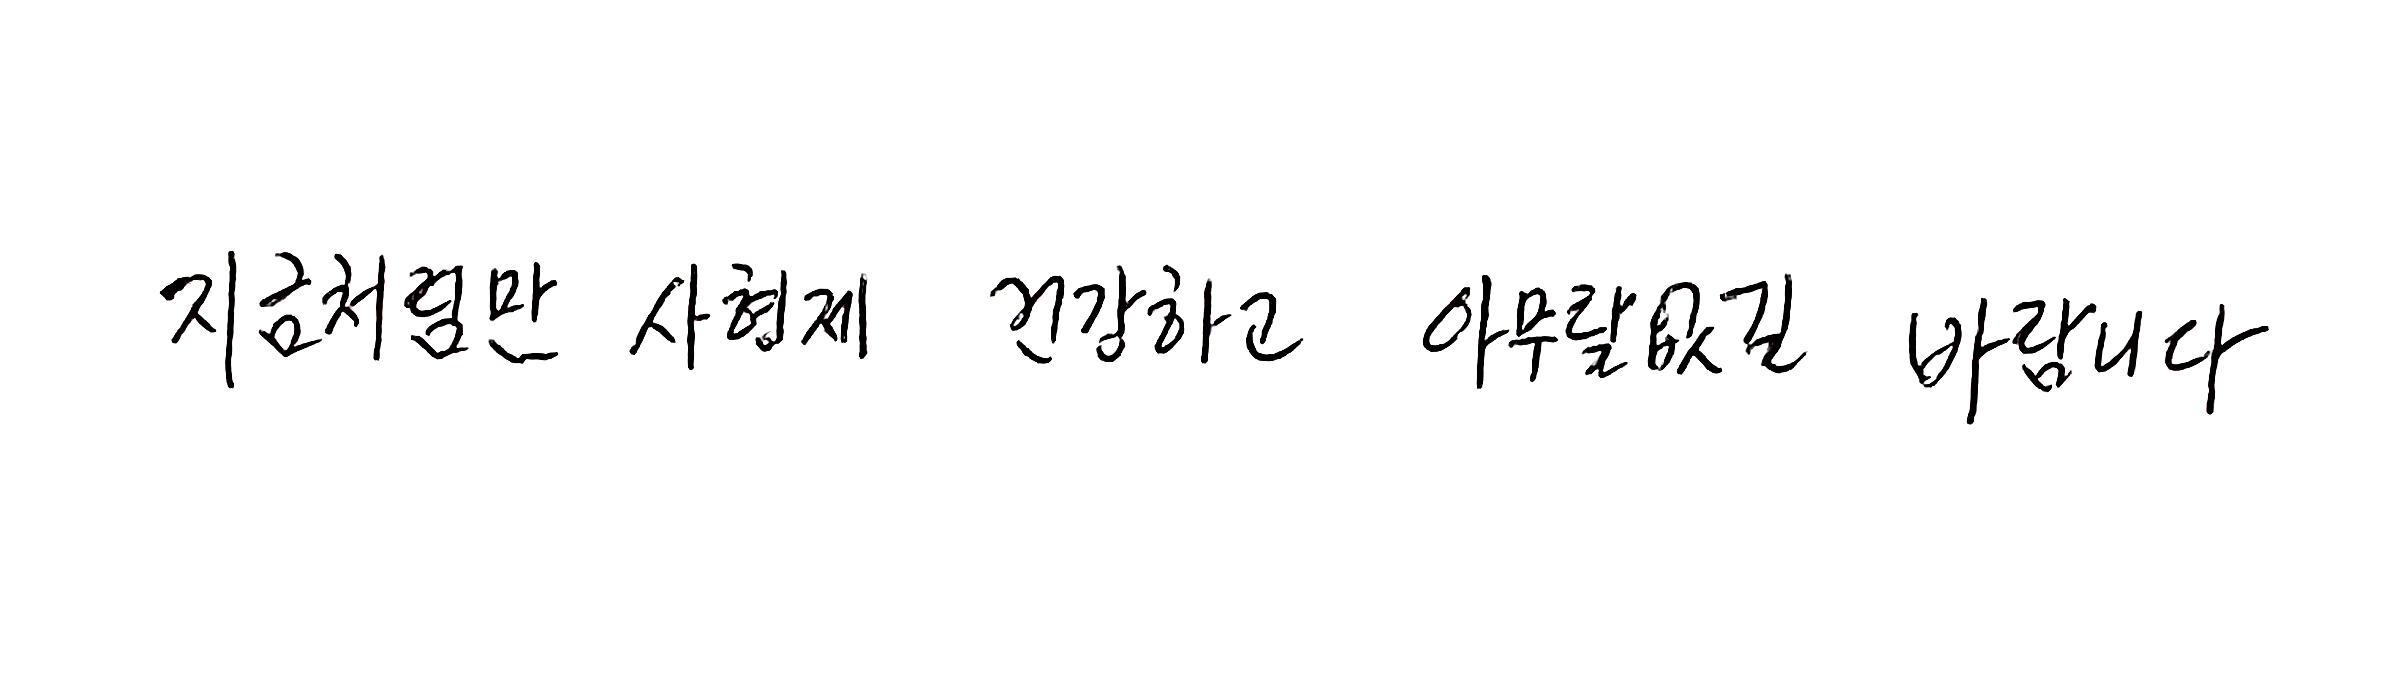 지금처럼만 사형제 건강하고 아무랄없길 바람니다